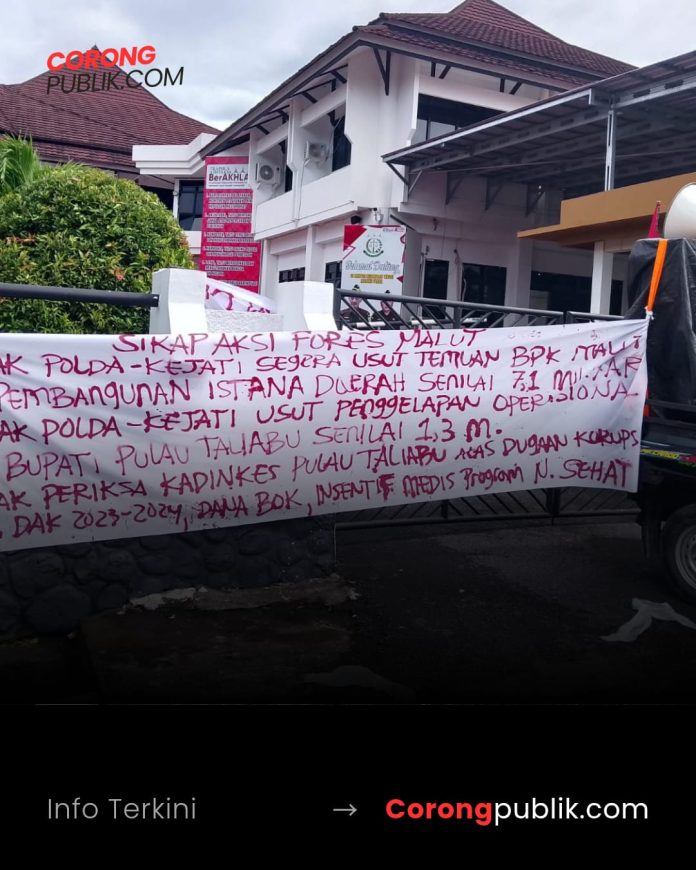 CORONG
PUBLIK.COM
BerAKHLAK
Selamat Datang
SIKAP AKSI FORES MALUT
AK POLDA-KEJATI SEGERA USUT TEMUAN BPK MALUT
PEMBANGUNAN ISTANA DAERAH SENILAI 7,1 MILIAR
AK POLDA-KEJATI USUT PENGGELAPAN OPERASIONA
BUPATI PULAU TALIABU SENILAI 1,3 M.
AK PERIKSA KADINKES PULAU TALIABU ATAS DUGAAN KORUPS
DAK 2023-2024, DANA BOK, INSENTIF MEDIS Program N. SEHAT
Info Terkini → Corongpublik.com